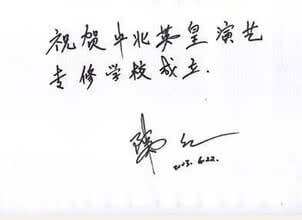 祝贺北英皇演艺
专修学校成立.
2003.6.22.